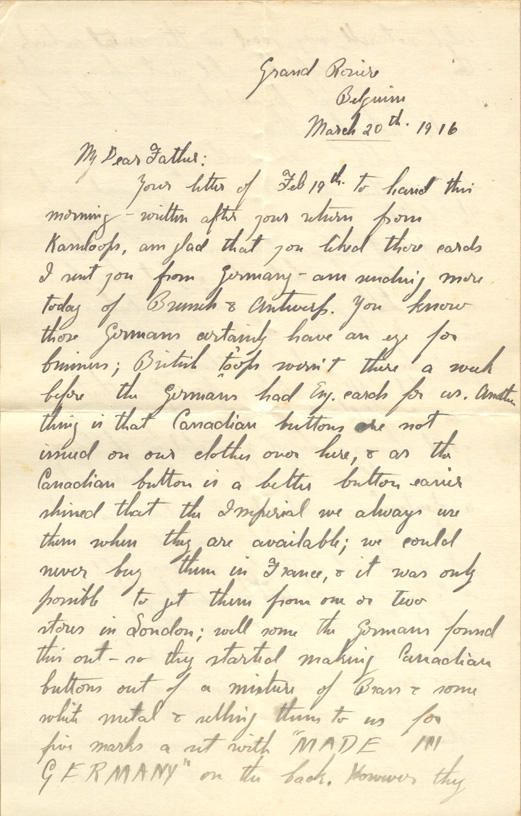 Grand Rosiere
Belguim
March 20th. 1916
My Dear Father:
Your letter of Feb 19th. to hand this
morning - written after your return from
Kamloops, am glad that you liked those cards
I sent you from Germany - am sending more
today of Brussels & Antwerp. You know
those Germans certainly have an eye for
business; British toops weren't there a week
before the Germans had Eng. cards for us. Another
thing is that Canadian buttons are not
issued on our clothes over here, & as the
Canadian button is a better button easier
shined that the Imperial we always use
them when they are available; we could
never buy them in France, & it was only
possible to get them from one or two
stores in London; well some the Germans found
this out - so they started making Canadian
buttons out of a mixture of Brass & some
white metal & selling them to us for
five marks a set with "MADE IN
GERMANY" on the back. However they